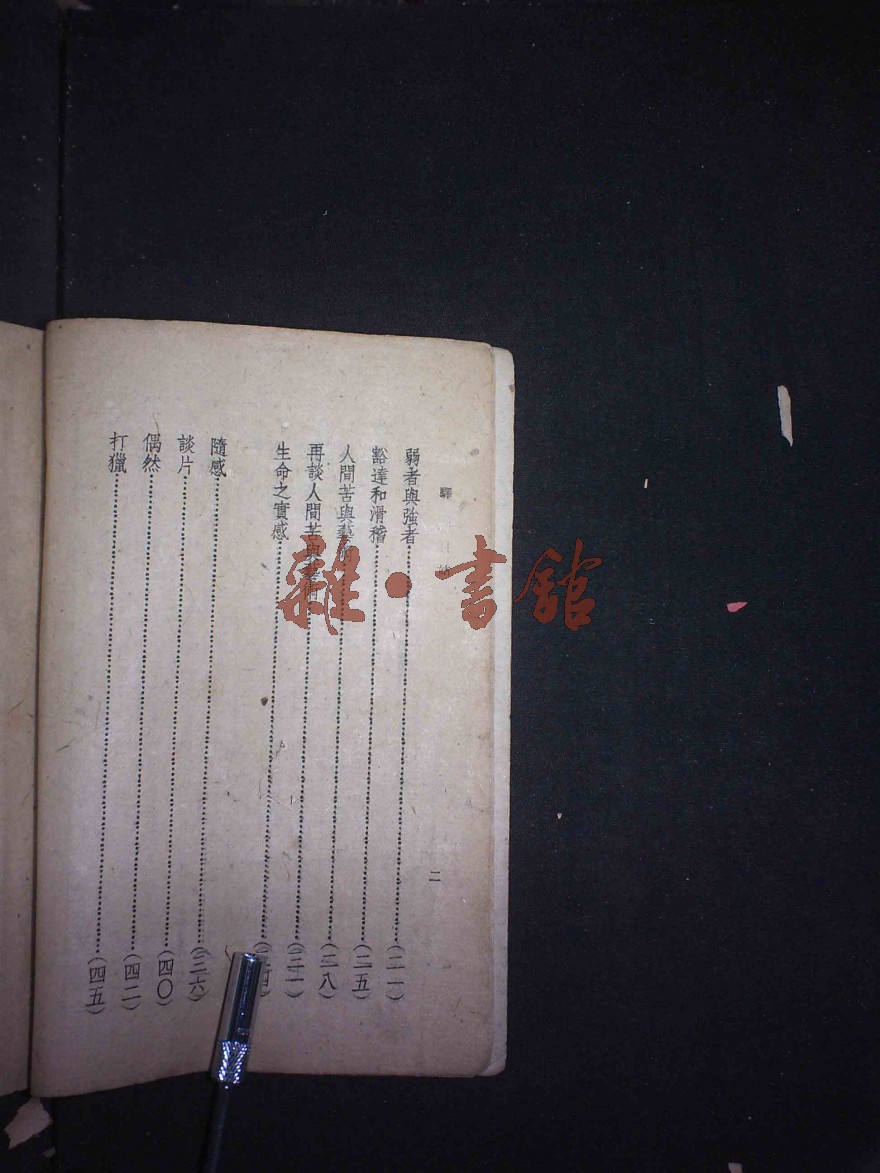 驛
二
弱者與強者…………(二一)
豁達和滑稽…………(二五)
人間苦與藝術…………(二八)
再談人間苦與藝術…………(三一)
生命之實感…………(三四)
隨感…………(三六)
談片…………(四〇)
偶然…………(四二)
打獵…………(四五)
雜·書館